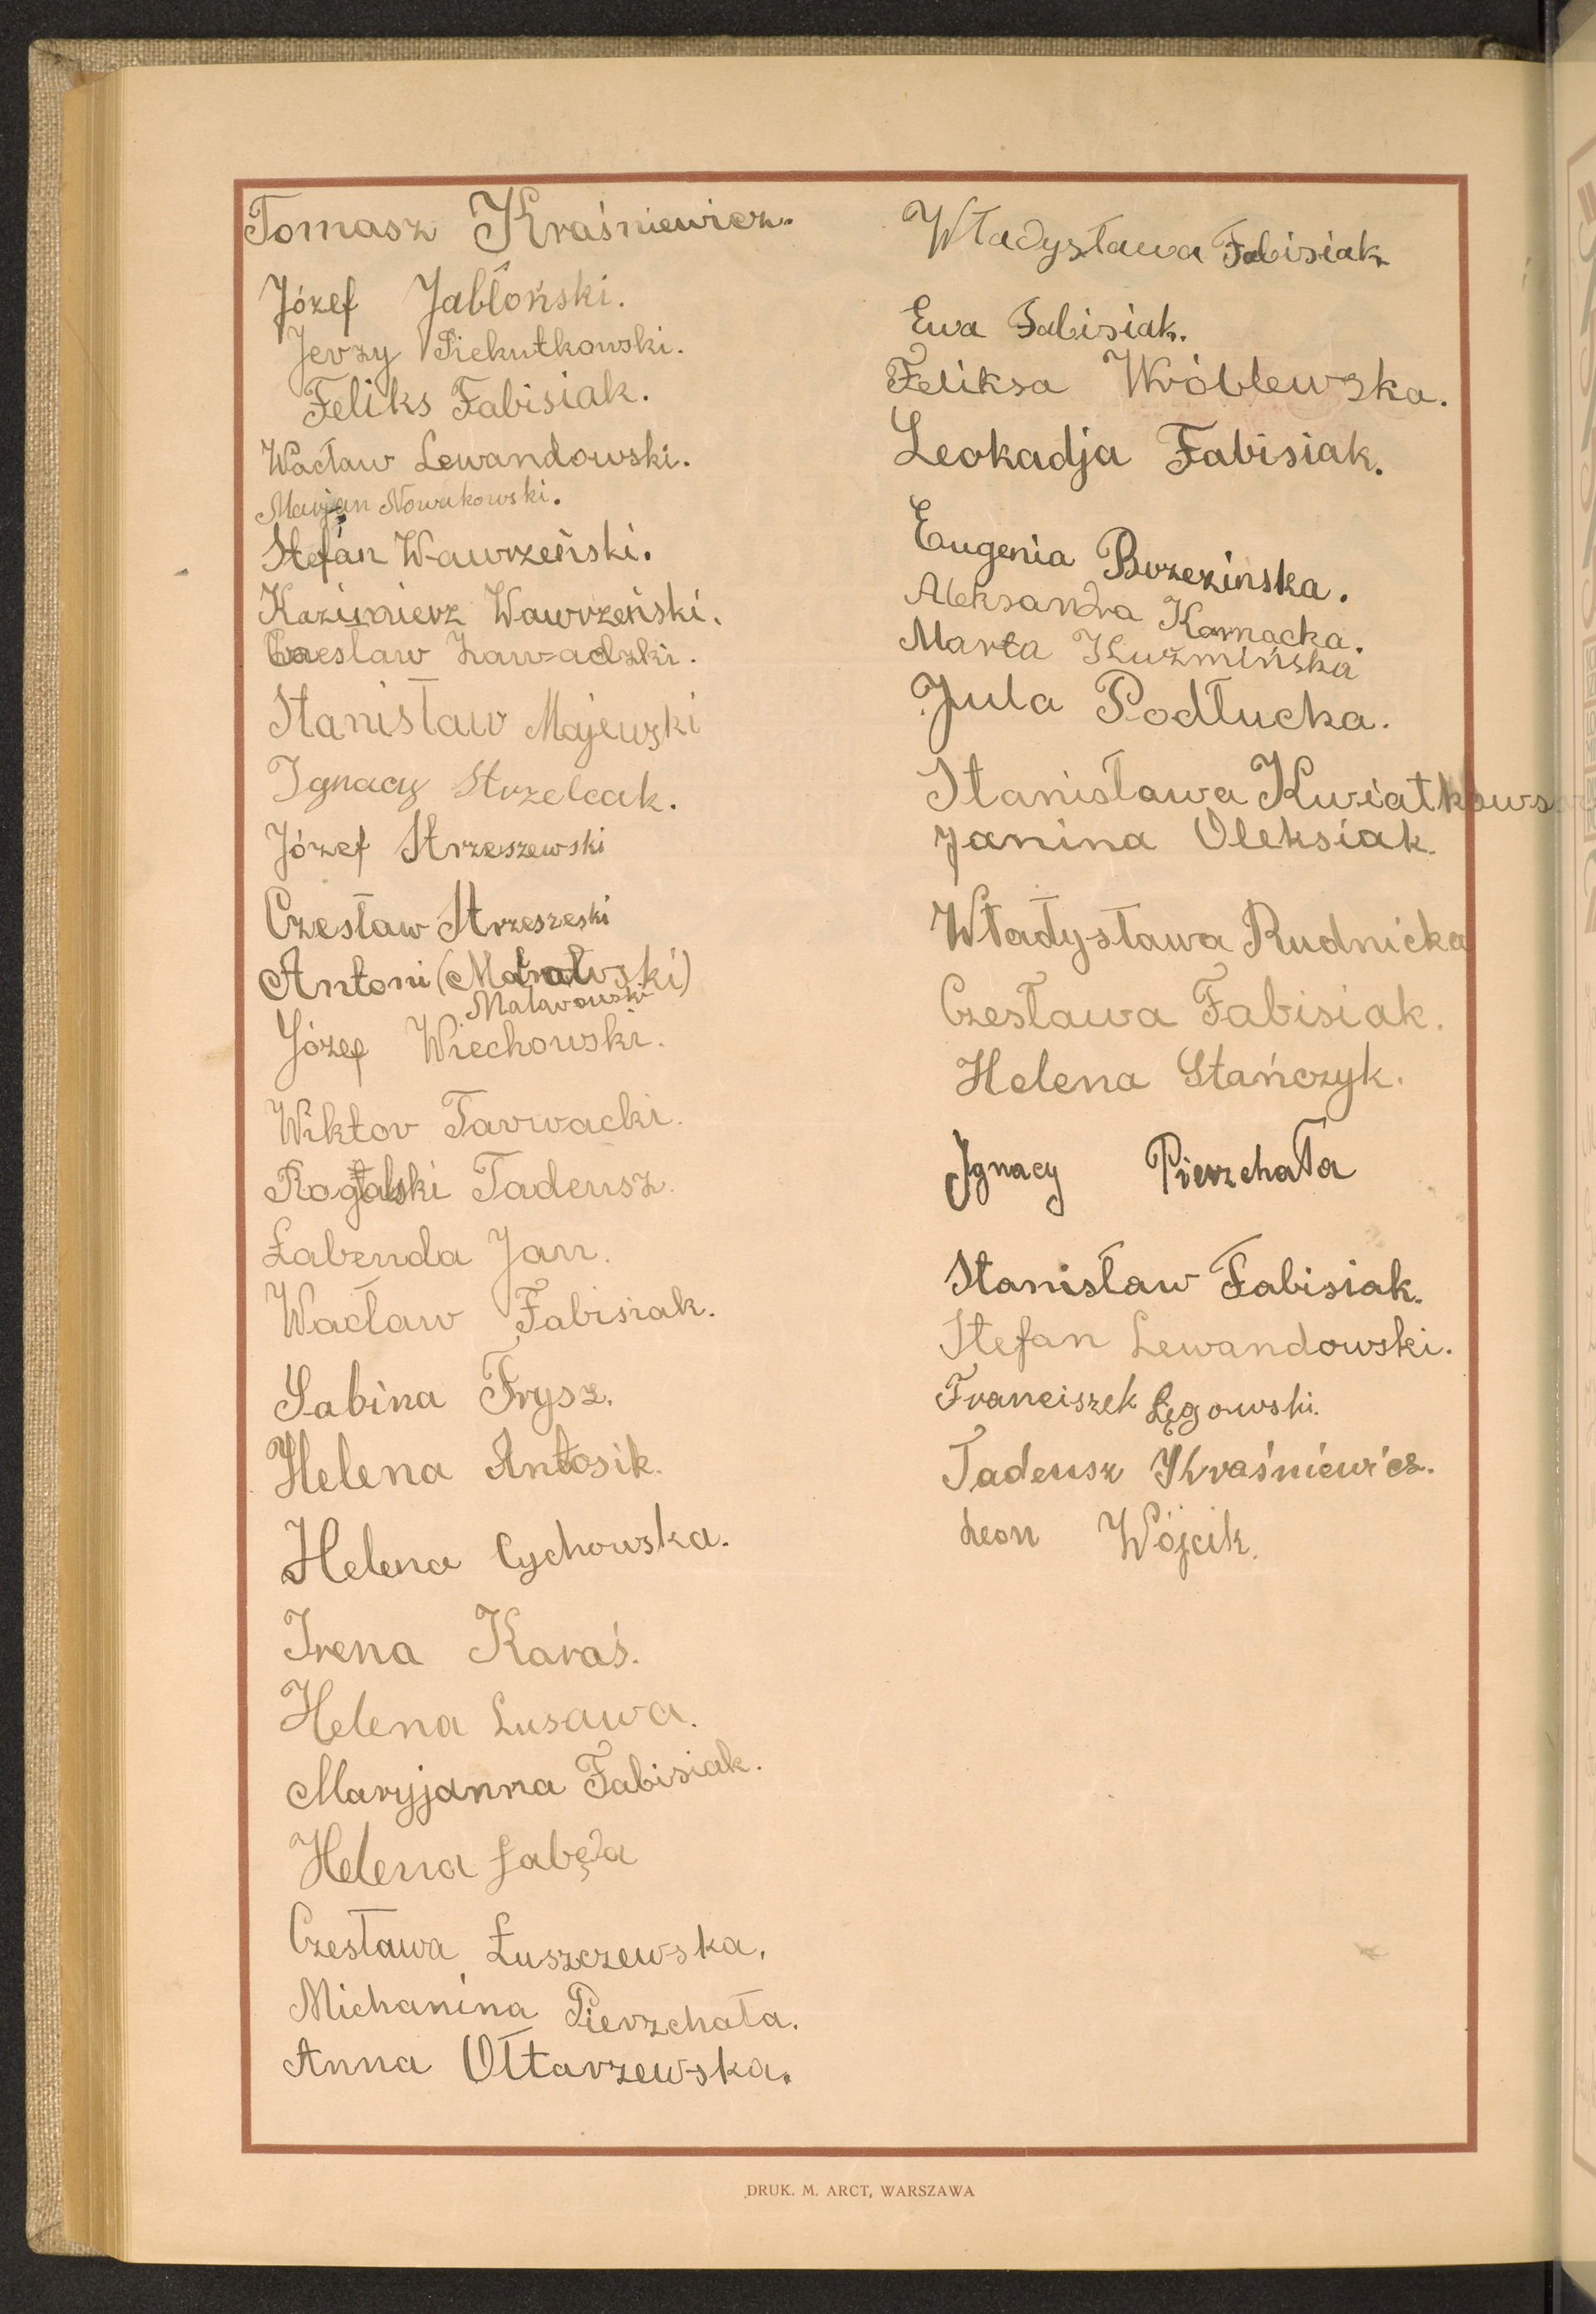 Tomasz Kraśniewicz.
Józef Jabłoński.
Jerzy Piekutkowski.
Feliks Fabisiak.
Wacław Lewandowski.
Marjan Nowakowski.
Stefan Wawrzeński.
Kazimierz Wawrzeński.
Czesław Zawadzki.
Stanisław Majewski
Ignacy Strzelcak.
Józef Strzeszewski
Czesław Strzeszeski
Antoni
Malarowski
Józef Wiechowski.
Wiktor Tarwacki.
Rogalski Tadeusz.
Łabenda Jan.
Wacław Fabisiak.
Sabina Frysz.
Helena Antosik.
Helena Cychowska.
Irena Karaś.
Helena Lusawa.
Maryjanna Fabisiak.
Helena Łabęda
Czesława Łuszczewska.
Michanina Pierzchała.
Anna Ołtarzewska.
Władysława Fabisiak
Ewa Fabisiak.
Feliksa Wróblewska.
Leokadja Fabisiak.
Eugenia Brzezinska.
Aleksandra Karnacka.
Marta Kuzmińska
Jula Podłucka.
Stanisława Kwiatkows
Janina Oleksiak.
Władysława Rudnicka
Czesława Fabisiak.
Helena Stańczyk.
Ignacy Pierzchała
Stanisław Fabisiak.
Stefan Lewandowski.
Franciszek Łęgowski.
Tadeusz Kraśniewicz.
Leon Wójcik.
DRUK. M. ARCT, WARSZAWA